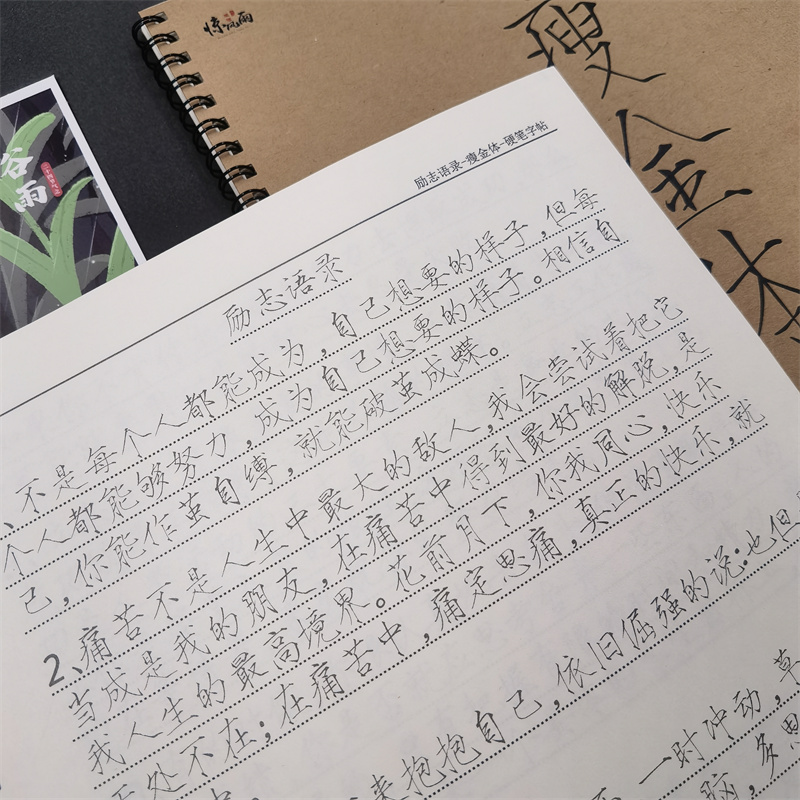 惊风雨
瘦金体
谷雨
励志语录-瘦金体-硬笔字帖
励志语录
、不是每个人都能成为,自己想要的样子,但每
个人都能够努力,成为自己想要的样子。相信自
己,你能作茧自缚,就能破茧成蝶。
2、痛苦不是人生中最大的敌人,我会尝试着把它
当成是我的朋友,在痛苦中得到最好的解脱,是
我人生的最高境界。花前月下,你我同心,快乐
无处不在;在痛苦中,痛定思痛,真正的快乐,就
来抱抱自己,依旧倔强的说:也但
一时冲动,草
脑,多思